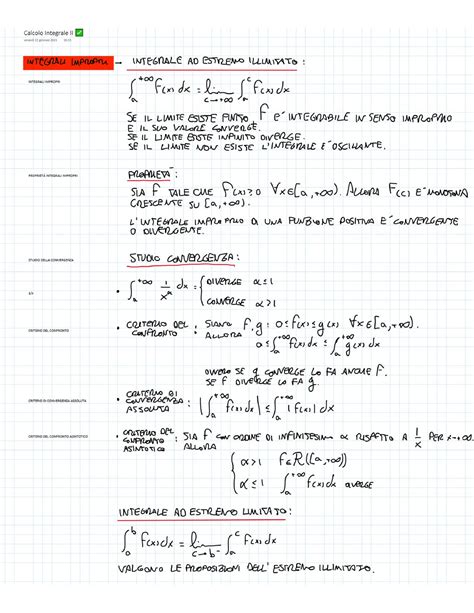 Calcolo Integrale II ✅
INTEGRALI IMPROPRI → INTEGRALE AD ESTREMO ILLIMITATO:
INTEGRALI IMPROPRI
∫_a^{+∞} F(x) dx = lim_{c→+∞} ∫_a^c F(x) dx
SE IL LIMITE ESISTE FINITO F E' INTEGRABILE IN SENSO IMPROPRIO
E IL SUO VALORE CONVERGE.
SE IL LIMITE ESISTE INFINITO DIVERGE.
SE IL LIMITE NON ESISTE L'INTEGRALE E' OSCILLANTE.
PROPRIETÀ INTEGRALI IMPROPRI
PROPRIETÀ:
SIA F TALE CHE F(x)≥0 ∀x∈[a,+∞). ALLORA F(c) E' MONOTONA
CRESCENTE SU [a,+∞).
L'INTEGRALE IMPROPRIO DI UNA FUNZIONE POSITIVA E' CONVERGENTE
O DIVERGENTE.
STUDIO DELLA CONVERGENZA
STUDIO CONVERGENZA:
• ∫_a^{+∞} 1/x^α dx = { DIVERGE α≤1
CONVERGE α>1
CRITERIO DEL CONFRONTO
• CRITERIO DEL CONFRONTO: SIANO F, g: 0≤F(x)≤g(x) ∀x∈[a,+∞).
ALLORA 0≤∫_a^{+∞} F(x) dx ≤ ∫_a^{+∞} g(x) dx
OVVERO SE g CONVERGE LO FA ANCHE F.
SE F DIVERGE LO FA g.
CRITERIO DI CONVERGENZA ASSOLUTA
• CRITERIO DI CONVERGENZA ASSOLUTA: |∫_a^{+∞} F(x) dx| ≤ ∫_a^{+∞} |F(x)| dx
CRITERIO DEL CONFRONTO ASINTOTICO
• CRITERIO DEL CONFRONTO ASINTOTICO: SIA F CON ORDINE DI INFINITESIMO α RISPETTO A 1/x PER x→+∞.
ALLORA
{ α>1 F∈R([a,+∞))
α≤1 ∫_a^{+∞} F(x) dx DIVERGE
INTEGRALE AD ESTREMO LIMITATO:
∫_a^b F(x) dx = lim_{c→b⁻} ∫_a^c F(x) dx
VALGONO LE PROPOSIZIONI DELL'ESTREMO ILLIMITATO.